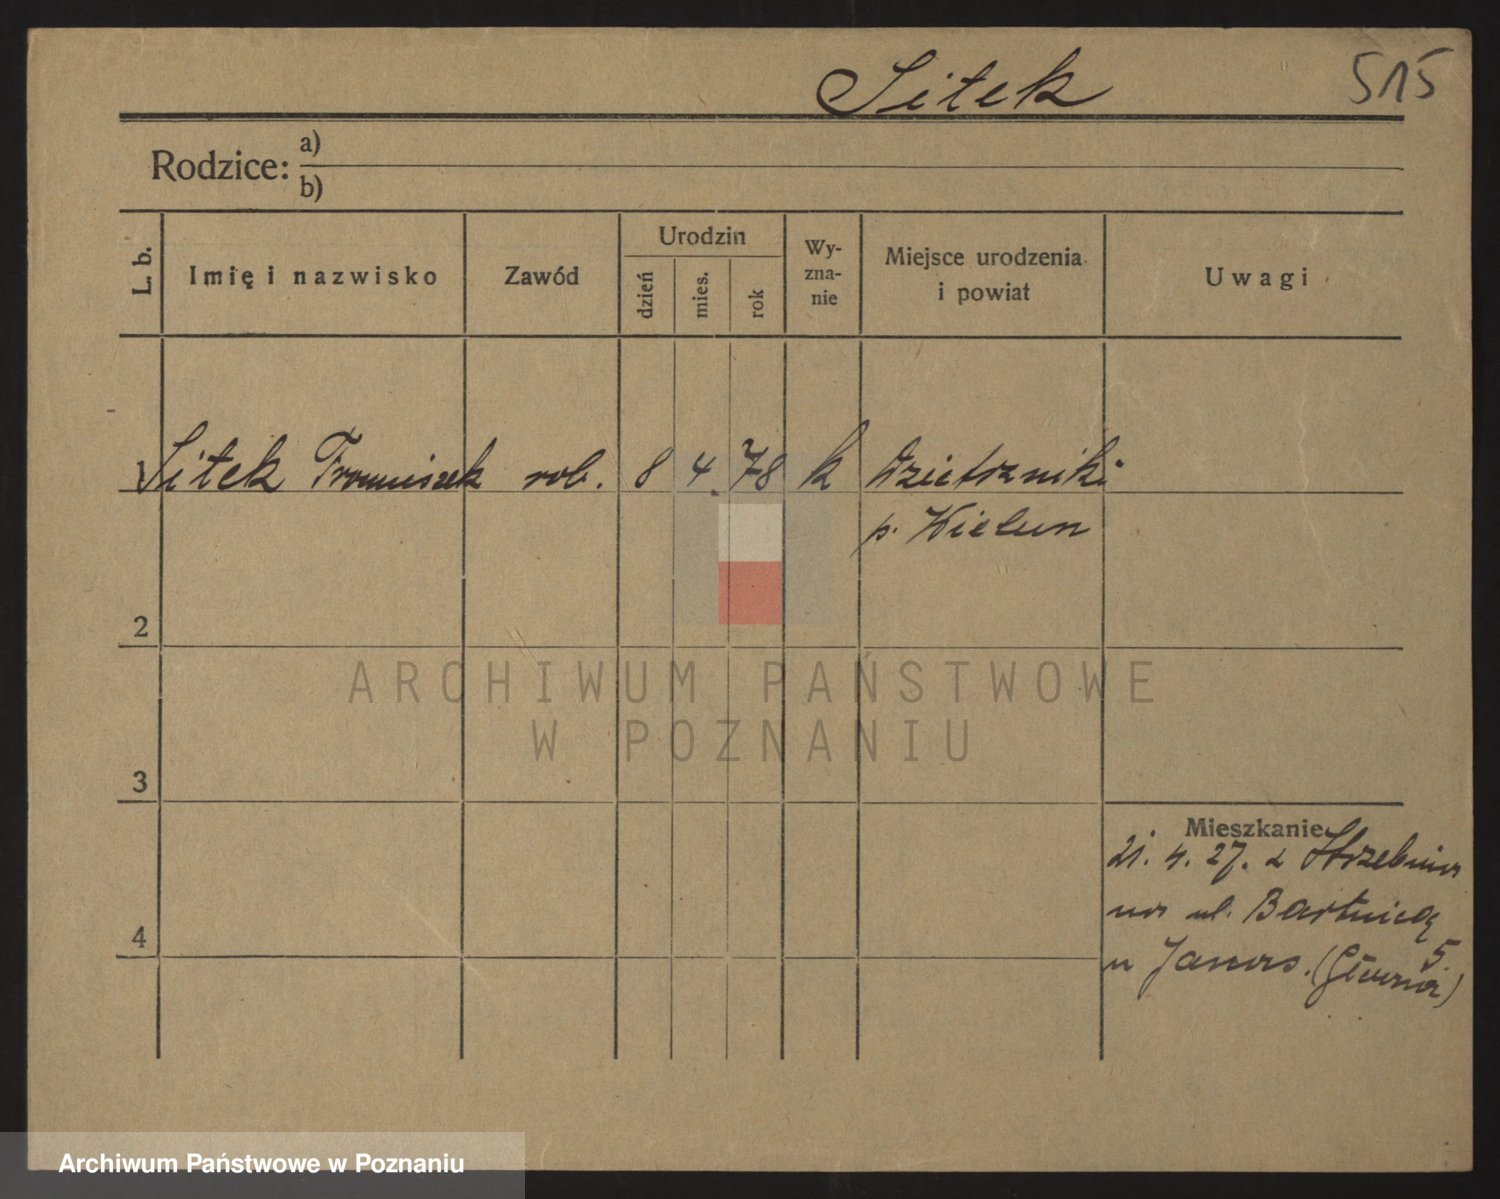 Sitek 515
Rodzice: a)
b)
L. b. Imię i nazwisko Zawód Urodzin dzień mies. rok Wy-zna-nie Miejsce urodzenia i powiat Uwagi
1 Sitek Franciszek rob. 8 4. 78 k Dzietrzniki
p. Wielun
2
ARCHIWUM PAŃSTWOWE
W POZNANIU
3
Mieszkanie
21. 4. 27. z
ul. Bartnicza
5.
u Janas. (Główna)
4
Archiwum Państwowe w Poznaniu